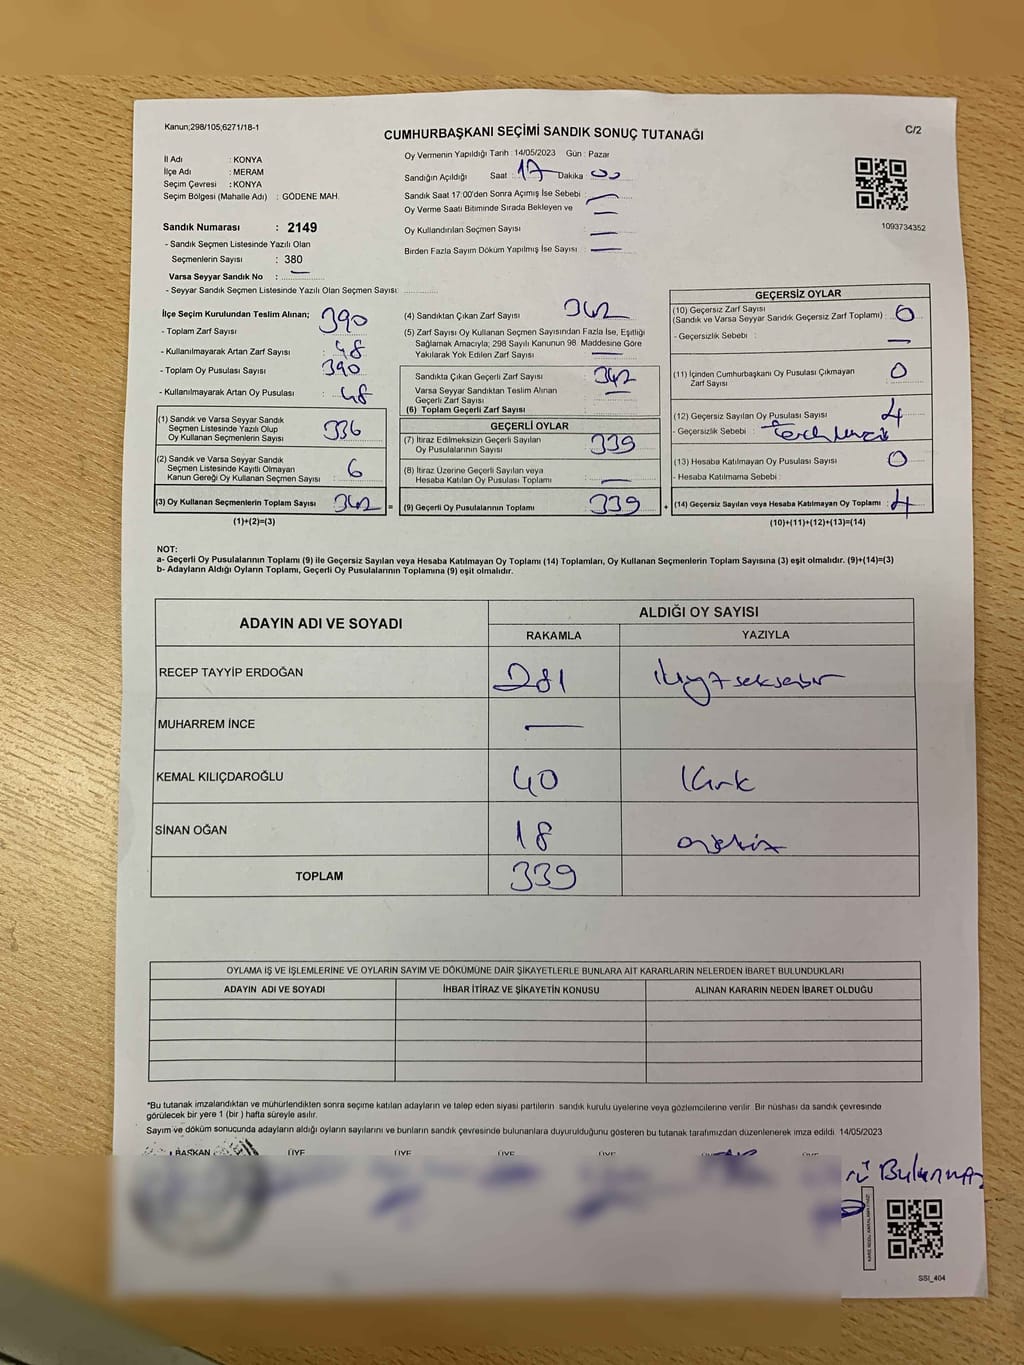 Kanun;298/105;6271/18-1
CUMHURBAŞKANI SEÇİMİ SANDIK SONUÇ TUTANAĞI
C/2
İl Adı : KONYA
İlçe Adı : MERAM
Seçim Çevresi : KONYA
Seçim Bölgesi (Mahalle Adı) : GÖDENE MAH.
Oy Vermenin Yapıldığı Tarih : 14/05/2023 Gün : Pazar
Sandığın Açıldığı Saat : 17 Dakika : 00
Sandık Saat 17:00'den Sonra Açımış İse Sebebi : —
Oy Verme Saati Bitiminde Sırada Bekleyen ve —
Oy Kullandırılan Seçmen Sayısı —
Birden Fazla Sayım Döküm Yapılmış İse Sayısı : —
1093734352
Sandık Numarası : 2149
- Sandık Seçmen Listesinde Yazılı Olan
Seçmenlerin Sayısı : 380
Varsa Seyyar Sandık No : —
- Seyyar Sandık Seçmen Listesinde Yazılı Olan Seçmen Sayısı:
İlçe Seçim Kurulundan Teslim Alınan;
- Toplam Zarf Sayısı : 390
- Kullanılmayarak Artan Zarf Sayısı : 48
- Toplam Oy Pusulası Sayısı : 390
- Kullanılmayarak Artan Oy Pusulası : 48
(1) Sandık ve Varsa Seyyar Sandık
Seçmen Listesinde Yazılı Olup
Oy Kullanan Seçmenlerin Sayısı : 336
(2) Sandık ve Varsa Seyyar Sandık
Seçmen Listesinde Kayıtlı Olmayan
Kanun Gereği Oy Kullanan Seçmen Sayısı : 6
(3) Oy Kullanan Seçmenlerin Toplam Sayısı : 342 =
(1)+(2)=(3)
(4) Sandıktan Çıkan Zarf Sayısı : 342
(5) Zarf Sayısı Oy Kullanan Seçmen Sayısından Fazla İse, Eşitliği
Sağlamak Amacıyla; 298 Sayılı Kanunun 98. Maddesine Göre
Yakılarak Yok Edilen Zarf Sayısı : —
Sandıkta Çıkan Geçerli Zarf Sayısı : 342
Varsa Seyyar Sandıktan Teslim Alınan
Geçerli Zarf Sayısı : —
(6) Toplam Geçerli Zarf Sayısı :
GEÇERLİ OYLAR
(7) İtiraz Edilmeksizin Geçerli Sayılan
Oy Pusulalarının Sayısı : 339
(8) İtiraz Üzerine Geçerli Sayılan veya
Hesaba Katılan Oy Pusulası Toplamı : —
(9) Geçerli Oy Pusulalarının Toplamı : 339 +
GEÇERSİZ OYLAR
(10) Geçersiz Zarf Sayısı
(Sandık ve Varsa Seyyar Sandık Geçersiz Zarf Toplamı) : 0
- Geçersizlik Sebebi : —
(11) İçinden Cumhurbaşkanı Oy Pusulası Çıkmayan
Zarf Sayısı : 0
(12) Geçersiz Sayılan Oy Pusulası Sayısı : 4
- Geçersizlik Sebebi :
(13) Hesaba Katılmayan Oy Pusulası Sayısı : 0
- Hesaba Katılmama Sebebi :
(14) Geçersiz Sayılan veya Hesaba Katılmayan Oy Toplamı : 4
(10)+(11)+(12)+(13)=(14)
NOT:
a- Geçerli Oy Pusulalarının Toplamı (9) ile Geçersiz Sayılan veya Hesaba Katılmayan Oy Toplamı (14) Toplamları, Oy Kullanan Seçmenlerin Toplam Sayısına (3) eşit olmalıdır. (9)+(14)=(3)
b- Adayların Aldığı Oyların Toplamı, Geçerli Oy Pusulalarının Toplamına (9) eşit olmalıdır.
ADAYIN ADI VE SOYADI
ALDIĞI OY SAYISI
RAKAMLA YAZIYLA
RECEP TAYYİP ERDOĞAN 281
MUHARREM İNCE —
KEMAL KILIÇDAROĞLU 40 Kırk
SİNAN OĞAN 18 onsekiz
TOPLAM 339
OYLAMA İŞ VE İŞLEMLERİNE VE OYLARIN SAYIM VE DÖKÜMÜNE DAİR ŞİKAYETLERLE BUNLARA AİT KARARLARIN NELERDEN İBARET BULUNDUKLARI
ADAYIN ADI VE SOYADI İHBAR İTİRAZ VE ŞİKAYETİN KONUSU ALINAN KARARIN NEDEN İBARET OLDUĞU
*Bu tutanak imzalandıktan ve mühürlendikten sonra seçime katılan adayların ve talep eden siyasi partilerin sandık kurulu üyelerine veya gözlemcilerine verilir. Bir nüshası da sandık çevresinde
görülecek bir yere 1 (bir ) hafta süreyle asılır.
Sayım ve döküm sonucunda adayların aldığı oyların sayılarını ve bunların sandık çevresinde bulunanlara duyurulduğunu gösteren bu tutanak tarafımızdan düzenlenerek imza edildi. 14/05/2023
BAŞKAN ÜYE ÜYE ÜYE ÜYE
SSI_404